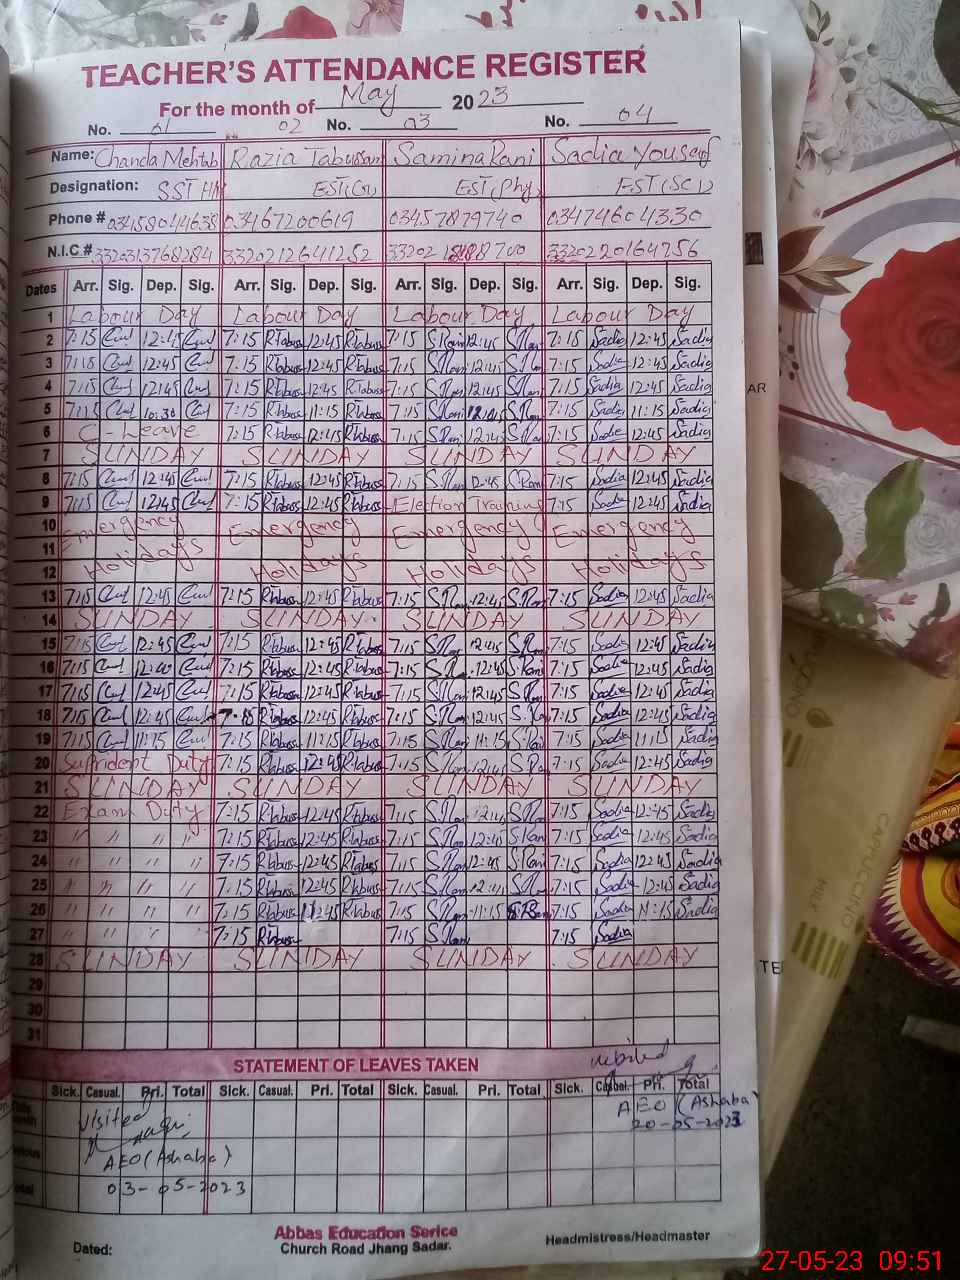 TEACHER'S ATTENDANCE REGISTER
For the month of May 2023
No. 01 02 No. 03 No. 04
Name: Chanda Mehtab Razia Tabussam Samina Rani Sadia Yousaf
Designation: SST HM EST(Cn) EST(Phy) EST(SC1)
Phone # 03458044638 03467200619 03457879740 03474604330
N.I.C.# 3320313768284 3320212641252 33202 8700 3320220164756
Dates Arr. Sig. Dep. Sig. Arr. Sig. Dep. Sig. Arr. Sig. Dep. Sig. Arr. Sig. Dep. Sig.
1 Labour Day Labour Day Labour Day Labour Day
2 7:15 12:45 7:15 RTabuss 12:45 RTabuss 7:15 S.Rani 12:45 S.Rani 7:15 Sadia 12:45 Sadia
3 7:15 12:45 7:15 RTabuss 12:45 RTabuss 7:15 S.Rani 12:45 S.Rani 7:15 Sadia 12:45 Sadia
4 7:15 12:45 7:15 RTabuss 12:45 RTabuss 7:15 S.Rani 12:45 S.Rani 7:15 Sadia 12:45 Sadia
5 7:15 10:30 7:15 RTabuss 11:15 RTabuss 7:15 S.Rani S.Rani 7:15 Sadia 11:15 Sadia
6 C-Leave 7:15 RTabuss 12:45 RTabuss 7:15 S.Rani 12:45 S.Rani 7:15 Sadia 12:45 Sadia
7 SUNDAY SUNDAY SUNDAY SUNDAY
8 7:15 12:45 7:15 RTabuss 12:45 RTabuss 7:15 S.Rani 12:45 S.Rani 7:15 Sadia 12:45 Sadia
9 7:15 12:45 7:15 RTabuss 12:45 RTabuss Election Training 7:15 Sadia 12:45 Sadia
10 Emergency Emergency Emergency Emergency
11
12 Holidays Holidays Holidays Holidays
13 7:15 12:45 7:15 RTabuss 12:45 RTabuss 7:15 S.Rani 12:45 S.Rani 7:15 Sadia 12:45 Sadia
14 SUNDAY SUNDAY SUNDAY SUNDAY
15 7:15 12:45 7:15 RTabuss 12:45 RTabuss 7:15 S.Rani 12:45 S.Rani 7:15 Sadia 12:45 Sadia
16 7:15 12:40 7:15 RTabuss 12:45 RTabuss 7:15 S.R 12:45 S.Rani 7:15 Sadia 12:45 Sadia
17 7:15 12:45 7:15 RTabuss 12:45 RTabuss 7:15 S.Rani 12:45 S.Rani 7:15 Sadia 12:45 Sadia
18 7:15 12:45 7:15 RTabuss 12:45 RTabuss 7:15 S.Rani 12:45 S.Ra 7:15 Sadia 12:45 Sadia
19 7:15 11:15 7:15 RTabuss 11:15 RTabuss 7:15 S.Rani 11:15 S.Rani 7:15 Sadia 11:15 Sadia
20 Suprident Duty 7:15 RTabuss 12:45 RTabuss 7:15 S.Rani 12:45 S.Ra 7:15 Sadia 12:45 Sadia
21 SUNDAY SUNDAY SUNDAY SUNDAY
22 Exam Duty 7:15 RTabuss 12:45 RTabuss 7:15 S.Rani 12:45 S.Rani 7:15 Sadia 12:45 Sadia
23 " " " " 7:15 RTabuss 12:45 RTabuss 7:15 S.Rani 12:45 S.Rani 7:15 Sadia 12:45 Sadia
24 " " " " 7:15 RTabuss 12:45 RTabuss 7:15 S.Rani 12:45 S.Rani 7:15 Sadia 12:45 Sadia
25 " " " " 7:15 RTabuss 12:45 RTabuss 7:15 S.Rani S.Rani 7:15 Sadia 12:45 Sadia
26 " " " " 7:15 RTabuss RTabuss 7:15 S.Rani 11:15 S.Rani 7:15 Sadia 11:15 Sadia
27 " " " 7:15 RTabuss 7:15 S.Rani 7:15 Sadia
28 SUNDAY SUNDAY SUNDAY SUNDAY
29
30
31
STATEMENT OF LEAVES TAKEN
visited
Sick. Casual. Pri. Total Sick. Casual. Pri. Total Sick. Casual. Pri. Total Sick. Casual. Pri. Total
Visited
AEO (Ashaba)
20-05-2023
AEO (Ashaba)
03-05-2023
Abbas Education Serice
Church Road Jhang Sadar.
Dated:
Headmistress/Headmaster
AR
CAPPUCCINO
MILK
TE
27-05-23 09:51